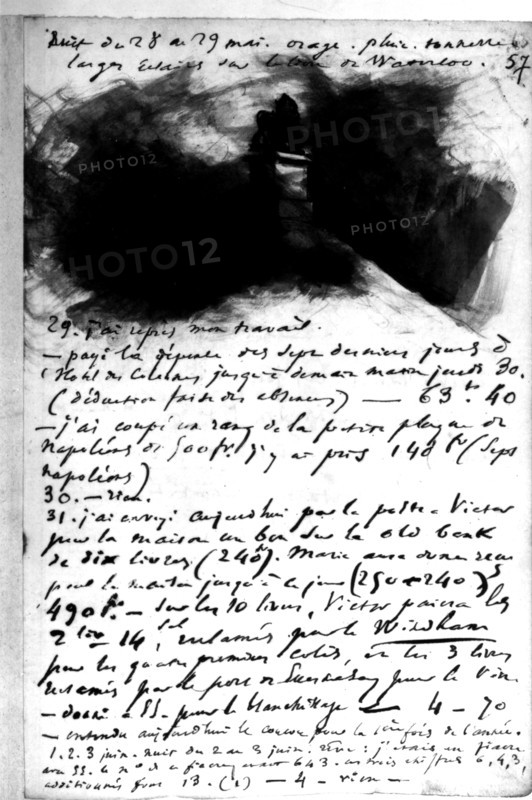 Nuit du 28 au 29 mai. orage. pluie. tonnerre
larges éclairs sur le lion de Waterloo. 57
PHOTO12
PHOTO12
PHOTO12
PHOTO12
29. j'ai repris mon travail.
— payé la dépense des sept derniers jours à
l'hôtel des Colonnes jusqu'à demain matin jeudi 30.
(déduction faite des absences) — 63 fr. 40
— j'ai coupé un rang de la petite plaque de
napoléons de 500 fr. j'y ai pris 140 fr (sept
napoléons)
30. — rien.
31. j'ai envoyé aujourd'hui par la poste à Victor
pour la maison un bon sur la old bank
de dix livres (240 fr). Marie aura donc reçu
pour la maison jusqu'à ce jour (250 + 240)
490 fr. — sur les 10 livres, Victor paiera les
2 liv — 14 sh réclamés par le Windham
pour les quatre premiers colis, et les 3 livres
réclamées par le port de Guernesey pour le vin
— donné à SS. pour le blanchissage — 4 — 70
— entendu aujourd'hui le coucou pour la 1ère fois de l'année.
1. 2. 3 juin. nuit du 2 au 3 juin. rêve : j'étais en fiacre
avec SS. le n° de ce fiacre était 643. ces trois chiffres 6, 4, 3,
additionnés font 13. (1) — 4 — rien —